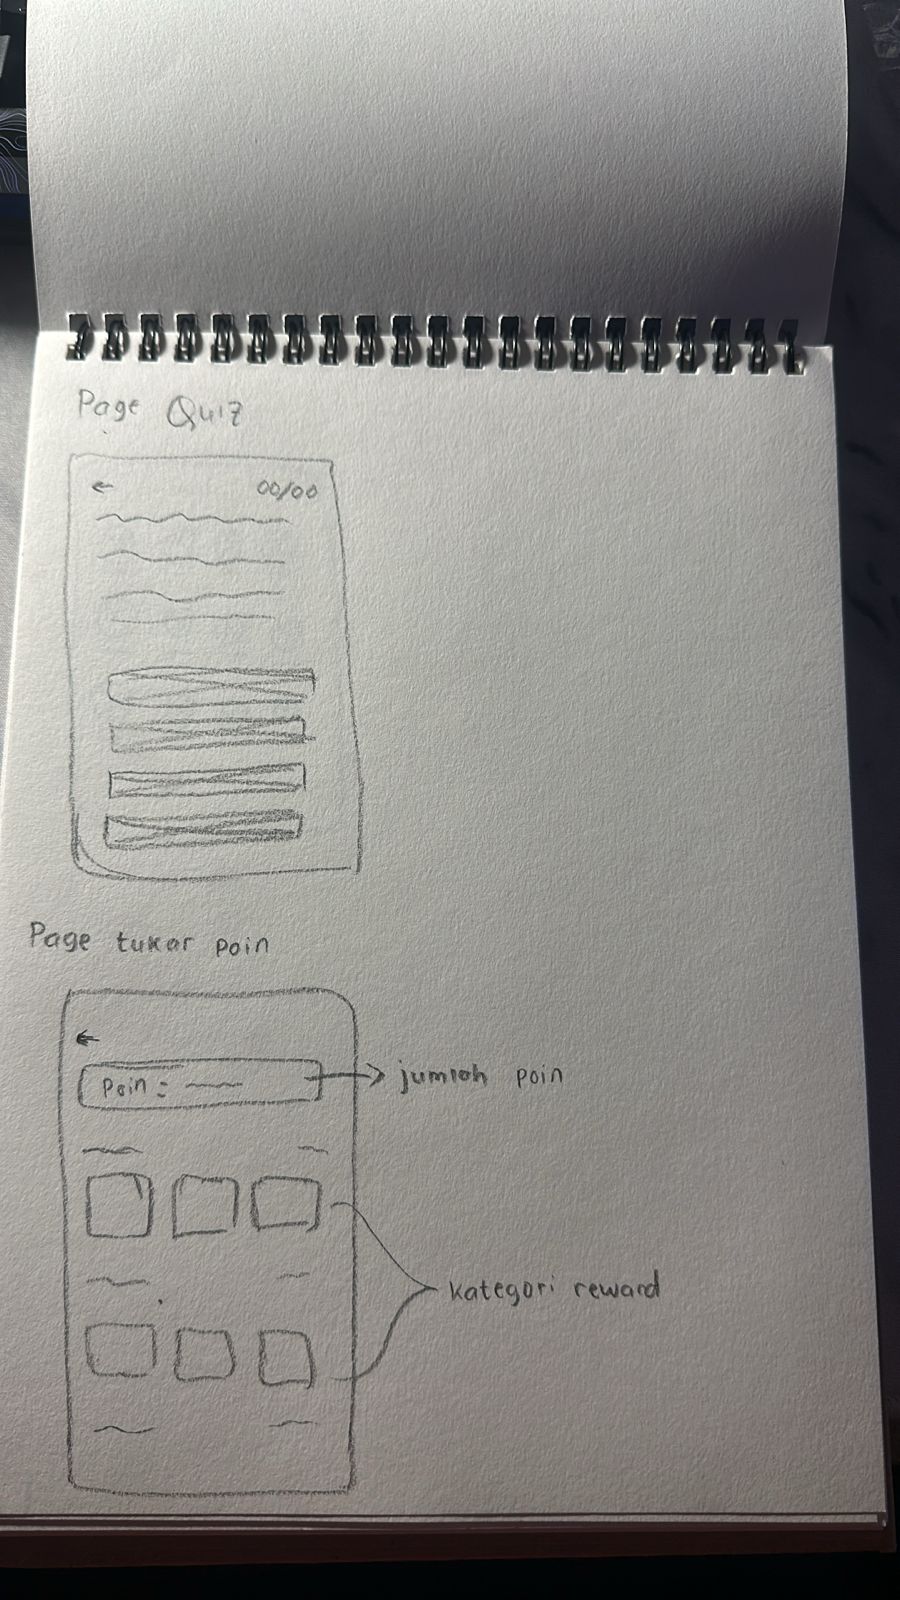 Page Quiz
←
00/00
Page tukar poin
←
Poin :
jumlah poin
kategori reward